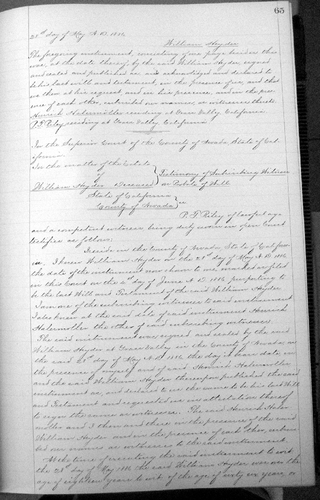 65
25th day of May A.D. 1882.
William Hyder
The foregoing instrument, consisting of one page besides this
was, at the date thereof, by the said William Hyder, signed
and sealed and published as, and acknowledged and declared to
be his last will and testament, in the presence of us, and that
we then at his request and in his presence, and in the pre-
sence of each other, subscribed our names as witnesses thereto.
residing at Grass Valley California
P. T. Riley residing at Grass Valley California
In the Superior Court of the County of Nevada State of Cal-
ifornia
In the matter of the Estate
of
William Hyder Deceased
Testimony of Subscribing Witness
on Probate of Will
State of California
County of Nevada } ss
P. T. Riley of lawful age
and a competent witness being duly sworn in open Court
testifies as follows:
I reside in the County of Nevada, State of Califor-
nia, I knew William Hyder on the 25th day of May A.D. 1882
the date of the instrument now shown to me, marked as filed
in this Court on the day of June A.D. 1882, purporting to
be the last Will and Testament of the said William Hyder
I am one of the subscribing witnesses to said instrument
I also knew at the said date of said instrument
the other of said subscribing witnesses
The said instrument was signed and sealed by the said
William Hyder at Grass Valley in the County of Nevada, on
the said 25th day of May A.D. 1882 the day it bears date, in
the presence of myself and of said
and the said William Hyder thereupon published the said
instrument as, and declared to us the same to be his last Will
and Testament and requested us in attestation thereof
to sign the same as witnesses. The said
and I then and there in the presence of the said
William Hyder and in the presence of each other, subscri-
bed our names as witnesses to the said instrument
At the time of executing the said instrument to wit
the 25th day of May 1882 the said William Hyder was over the
age of eighteen years to wit of the age of sixty six years, or